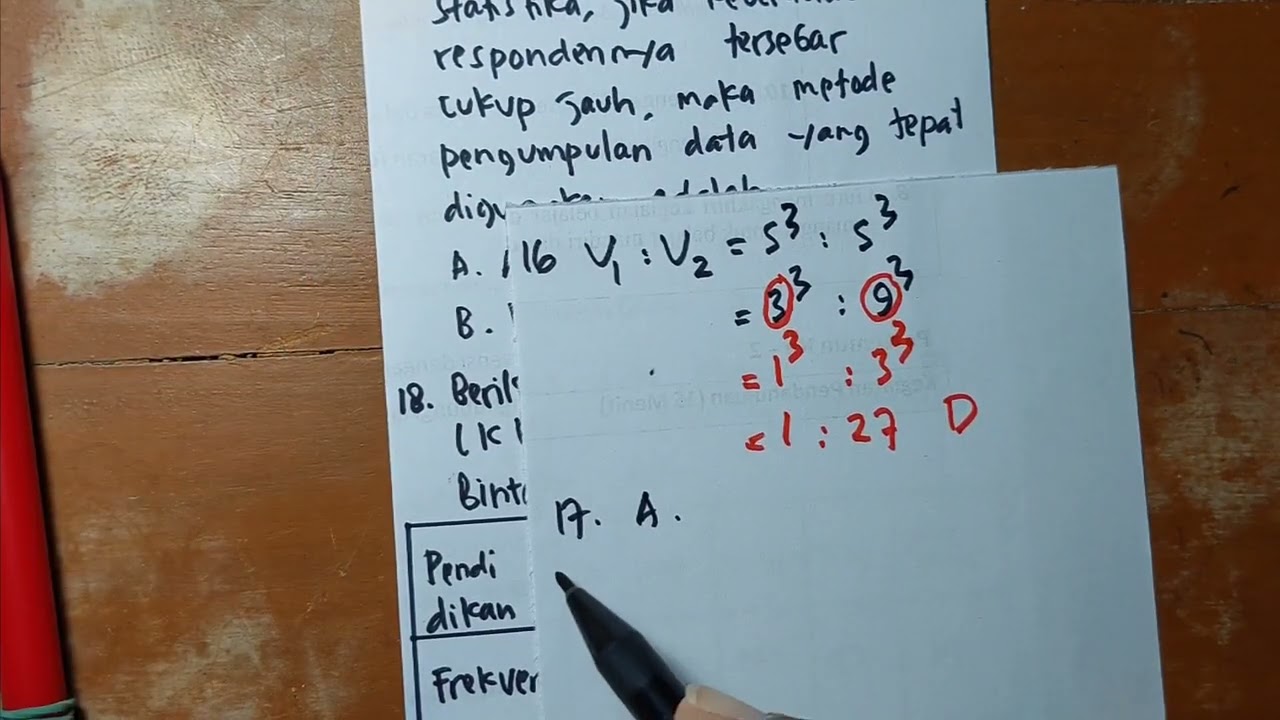 statistika, jika
respondennya tersebar
cukup jauh, maka metode
pengumpulan data yang tepat
adalah
A.
B.
18.
(K
Pendi
dikan
16 V₁ : V₂ = s³ : s³
= 3³ : 9³
= 1³ : 3³
= 1 : 27 D
17. A.